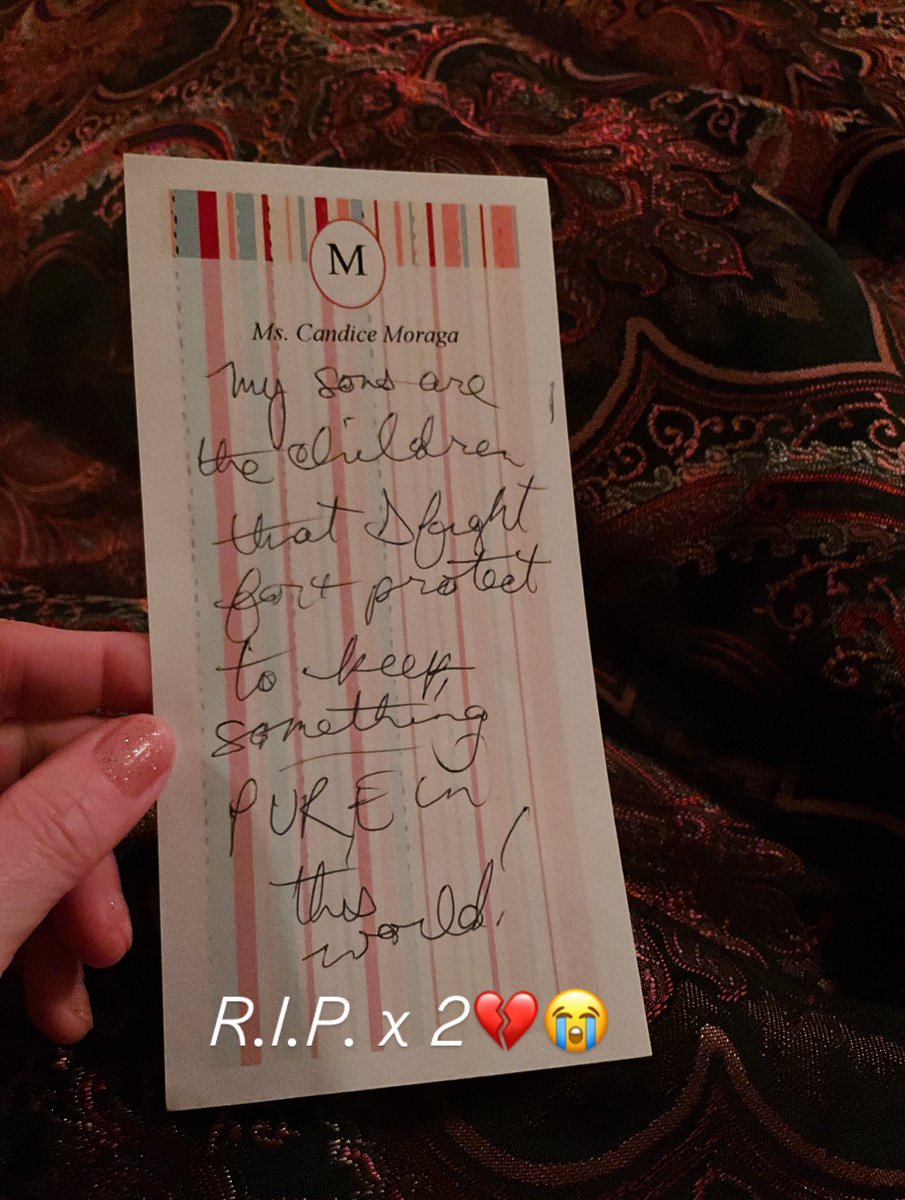 M
Ms. Candice Moraga
My sons are
the children
that I fought
for + protect
to keep
something
PURE in
this
world!
R.I.P. x 2💔😭